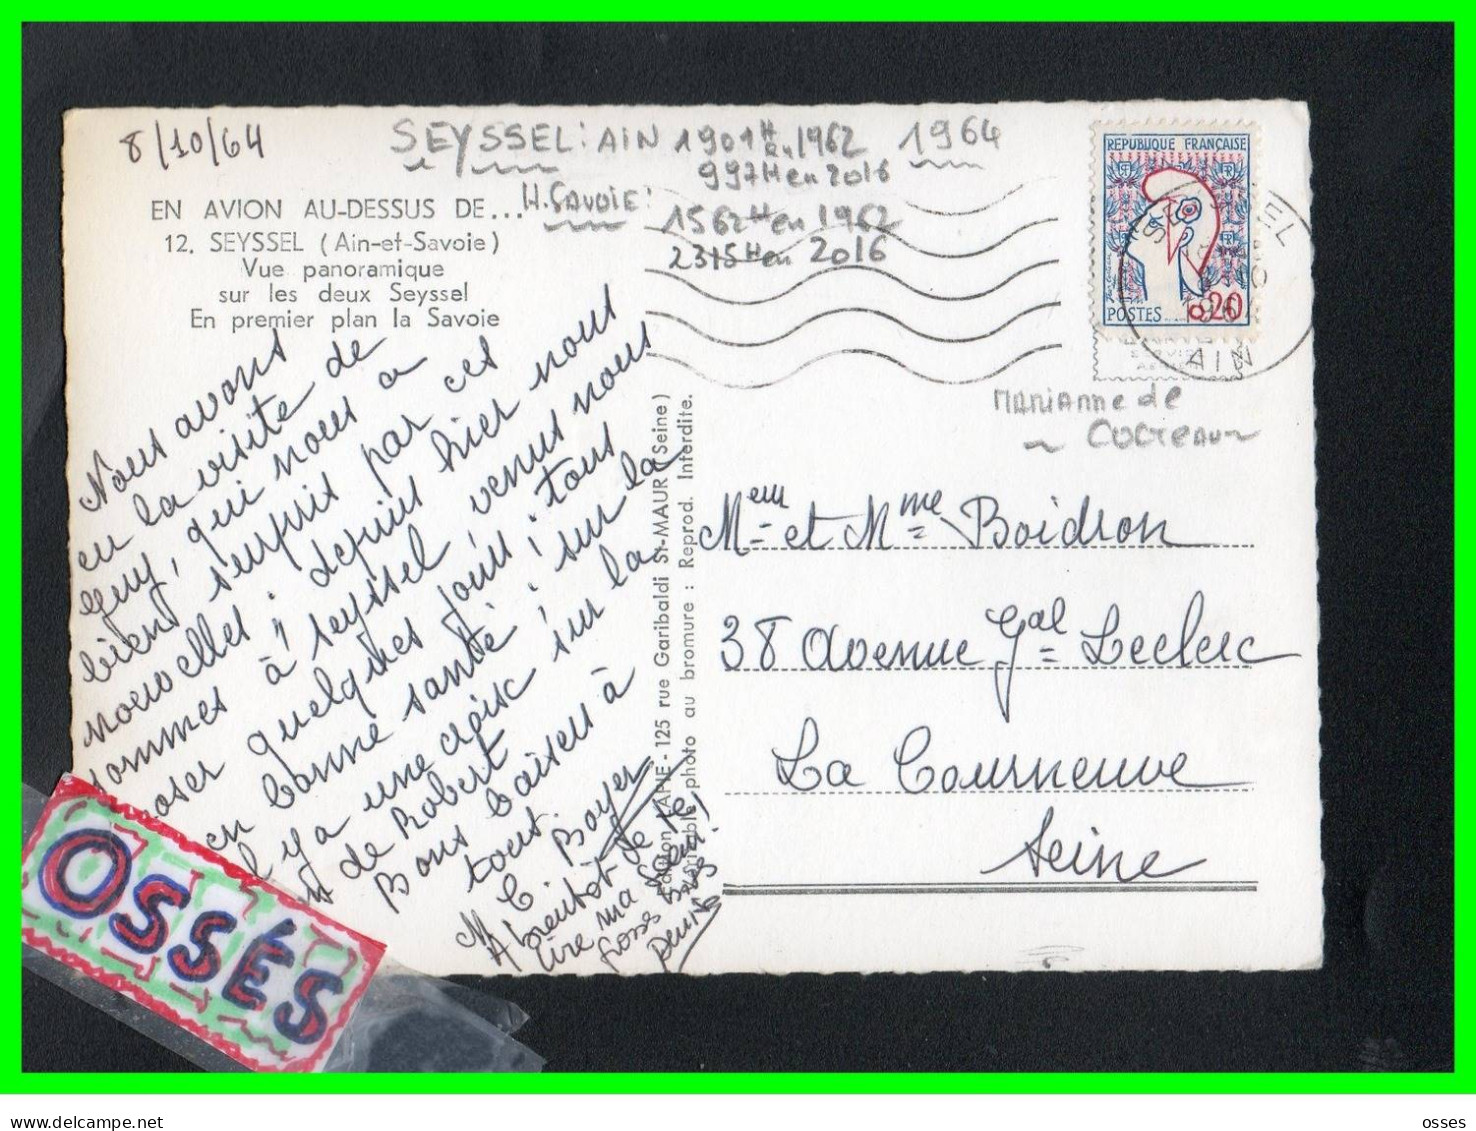 8/10/64
SEYSSEL: AIN 1901H en 1962 1964
997H en 2016
H. SAVOIE: 1562H en 1962
2315H en 2016
EN AVION AU-DESSUS DE...
12. SEYSSEL (Ain-et-Savoie)
Vue panoramique
sur les deux Seyssel
En premier plan la Savoie
RÉPUBLIQUE FRANÇAISE
0,20
POSTES
AIN
Marianne de
Cocteau
Nous avons
eu la visite de
guy, qui nous a
bien surpris par ces
nouvelles; depuis hier nous
sommes à Seyssel, venus nous
poser quelques jours; tous
en bonne santé; sur la
il y a une croix sur la
de Robert
Bons baisers à
tous.
M C Boyer
A bientôt de te
lire ma
gross
Edition LAPIE - 125 rue Garibaldi St-MAUR (Seine)
Véritable photo au bromure : Reprod. Interdite.
Meur et Mme Boidron
38 Avenue Gal Leclerc
La Courneuve
Seine
OSSÉS
delcampe.net
osses